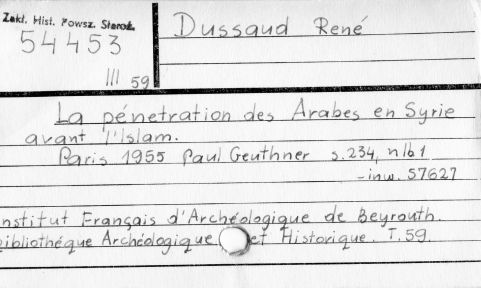 Zakł. Hist. Powsz. Staroż.
54453
III 59
Dussaud René
La pénetration des Arabes en Syrie
avant l'Islam.
Paris 1955 Paul Geuthner s.234, nlb.1
-inw. 57627
Institut Français d'Archéologique de Beyrouth.
Bibliothéque Archéologique et Historique. T.59.